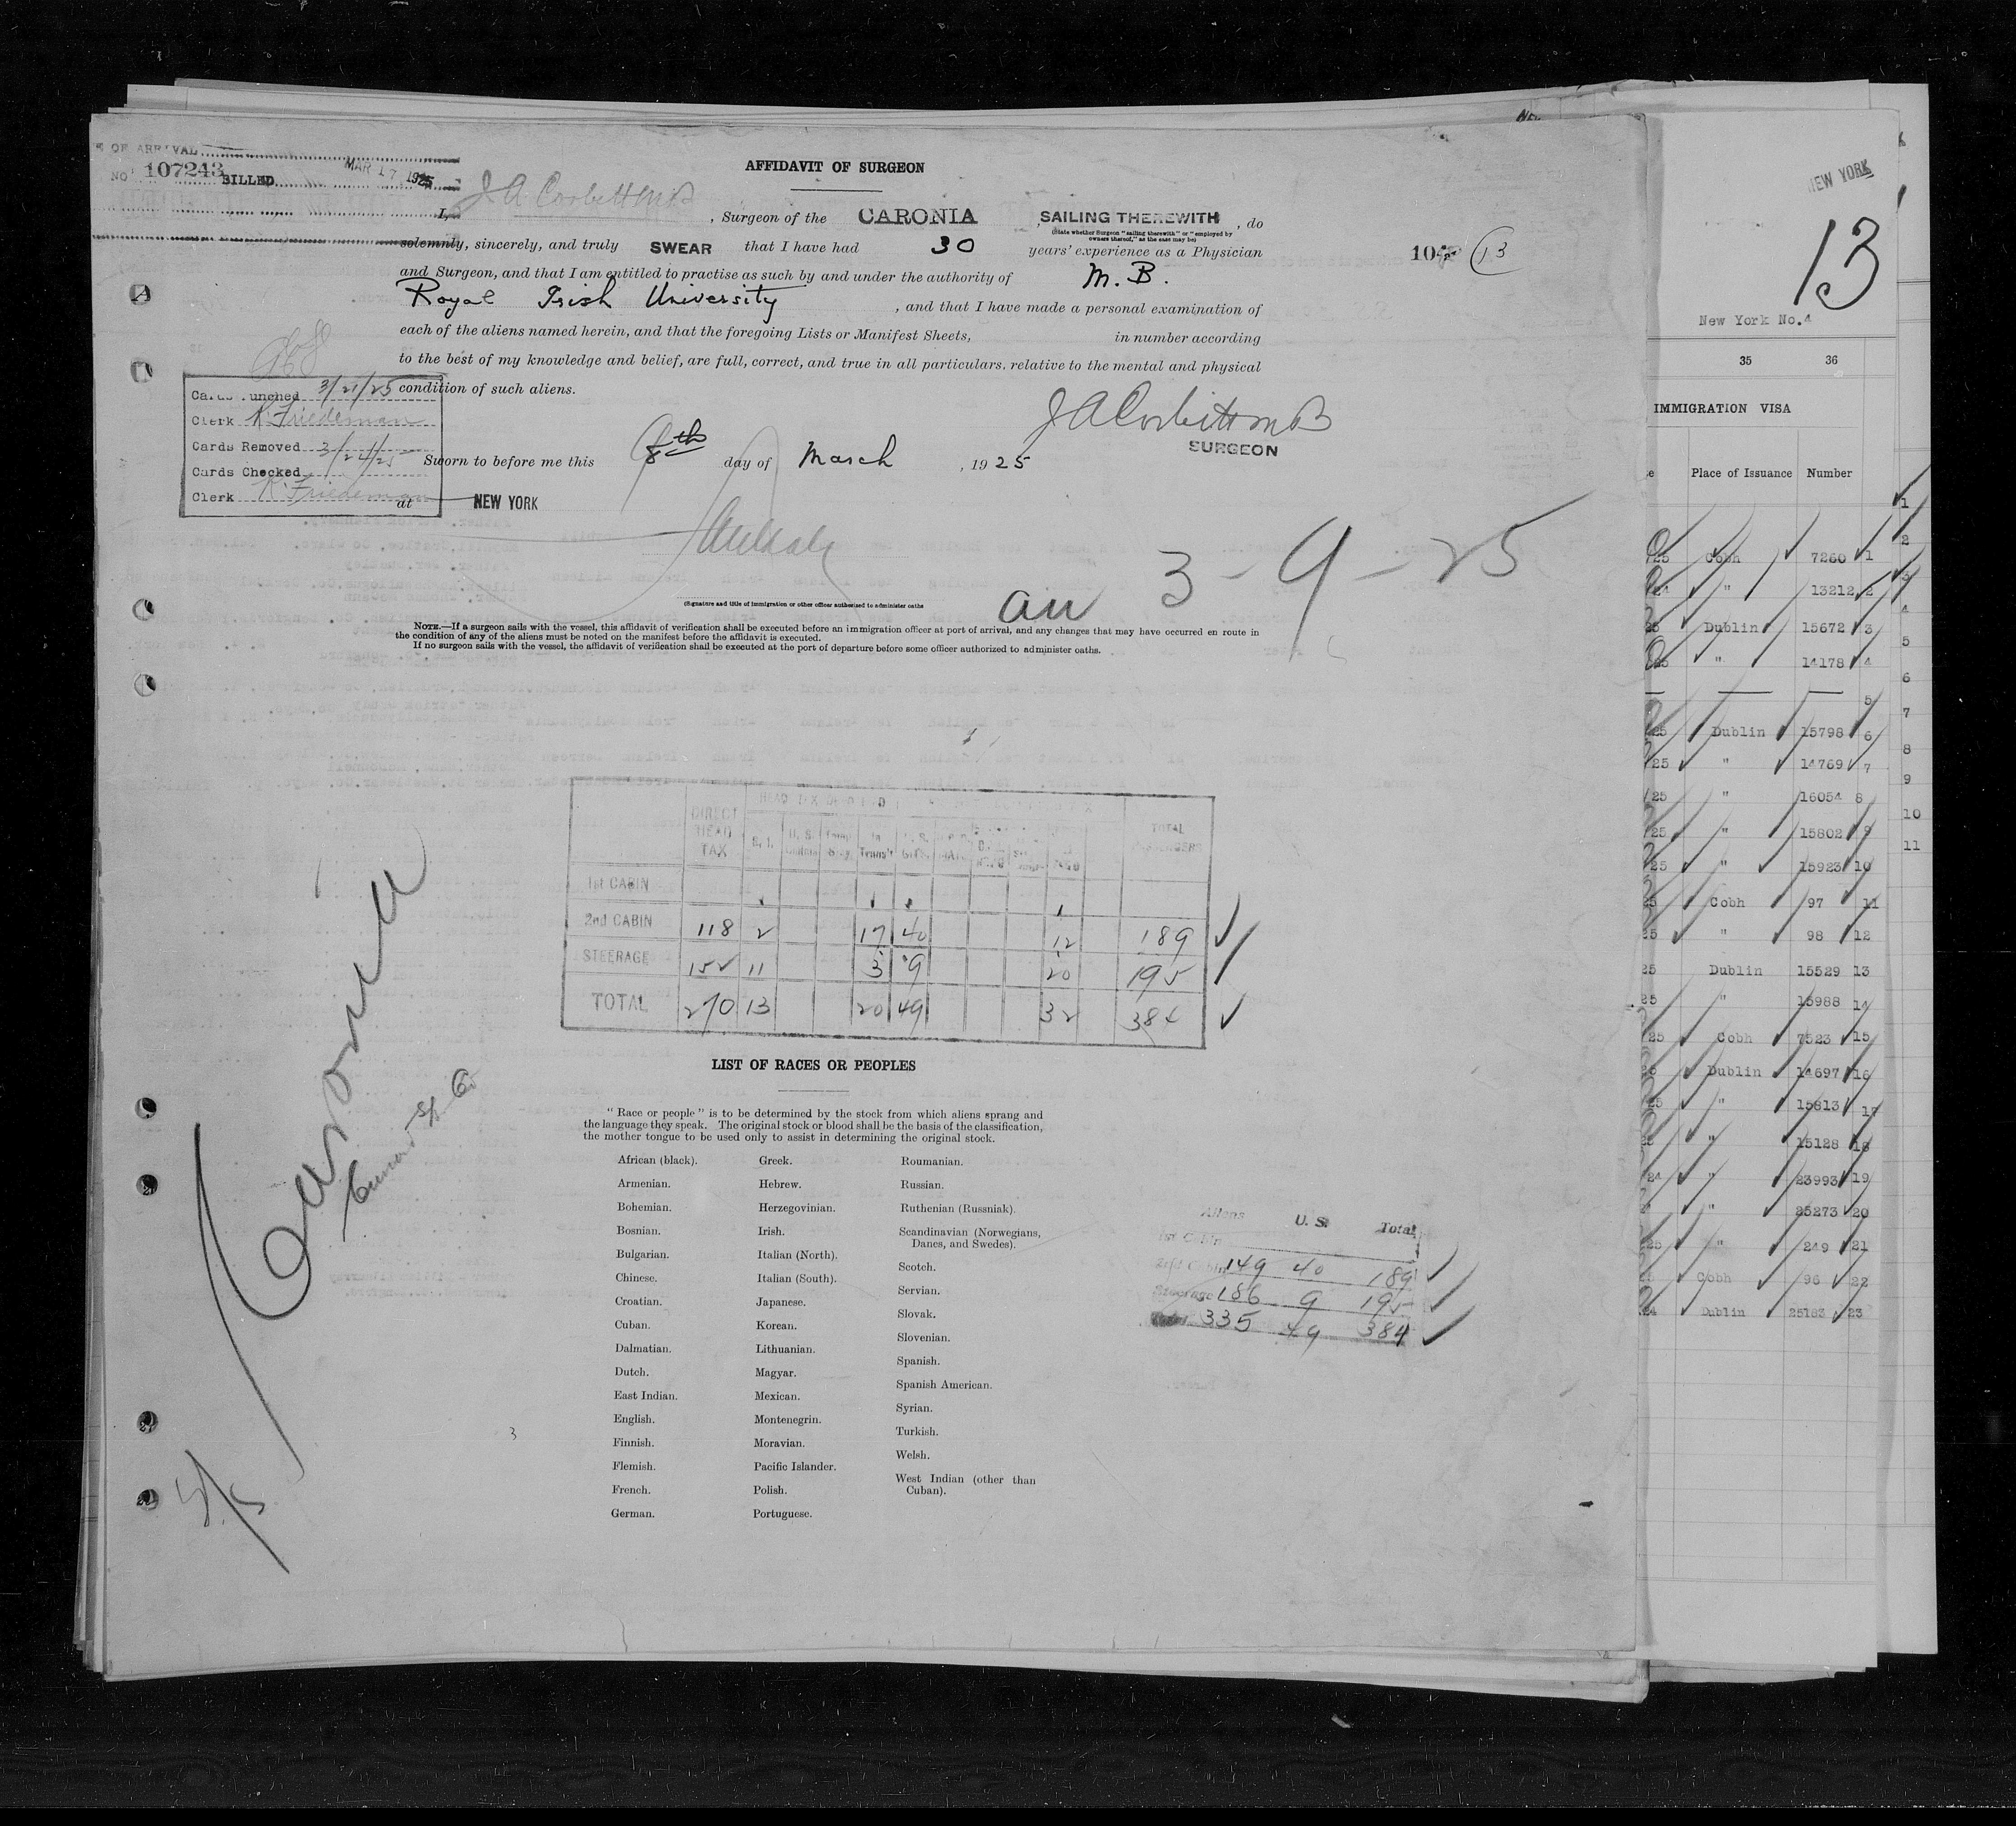 OF ARRIVAL
NO 107243 BILLED MAR 17 1925
AFFIDAVIT OF SURGEON
I, J A Corbett M B, Surgeon of the CARONIA, SAILING THEREWITH, do
(State whether Surgeon "sailing therewith" or "employed by
owners thereof," as the case may be)
solemnly, sincerely, and truly SWEAR that I have had 30 years' experience as a Physician
and Surgeon, and that I am entitled to practise as such by and under the authority of M. B.
Royal Irish University, and that I have made a personal examination of
each of the aliens named herein, and that the foregoing Lists or Manifest Sheets, in number according
to the best of my knowledge and belief, are full, correct, and true in all particulars, relative to the mental and physical
condition of such aliens.
13
Cards Punched 3/21/25
Clerk K. Friedeman
Cards Removed 3/24/25
Cards Checked
Clerk K. Friedeman
J A Corbett M B
SURGEON
Sworn to before me this 8th day of March, 1925
at NEW YORK
3-9-25
(Signature and title of immigration or other officer authorised to administer oaths
NOTE.—If a surgeon sails with the vessel, this affidavit of verification shall be executed before an immigration officer at port of arrival, and any changes that may have occurred en route in
the condition of any of the aliens must be noted on the manifest before the affidavit is executed.
If no surgeon sails with the vessel, the affidavit of verification shall be executed at the port of departure before some officer authorized to administer oaths.
DIRECT HEAD TAX
TOTAL PASSENGERS
1st CABIN
2nd CABIN 118 2 17 40 12 189
STEERAGE 152 11 3 9 20 195
TOTAL 270 13 20 49 32 384
Caronia
Cunard SS Co
LIST OF RACES OR PEOPLES
" Race or people " is to be determined by the stock from which aliens sprang and
the language they speak. The original stock or blood shall be the basis of the classification,
the mother tongue to be used only to assist in determining the original stock.
African (black).
Armenian.
Bohemian.
Bosnian.
Bulgarian.
Chinese.
Croatian.
Cuban.
Dalmatian.
Dutch.
East Indian.
English.
Finnish.
Flemish.
French.
German.
Greek.
Hebrew.
Herzegovinian.
Irish.
Italian (North).
Italian (South).
Japanese.
Korean.
Lithuanian.
Magyar.
Mexican.
Montenegrin.
Moravian.
Pacific Islander.
Polish.
Portuguese.
Roumanian.
Russian.
Ruthenian (Russniak).
Scandinavian (Norwegians,
Danes, and Swedes).
Scotch.
Servian.
Slovak.
Slovenian.
Spanish.
Spanish American.
Syrian.
Turkish.
Welsh.
West Indian (other than
Cuban).
Aliens U. S. Total
1st Cabin
2nd Cabin 149 40 189
Steerage 186 9 195
Total 335 49 384
NEW YORK
13
New York No.4
35 36
IMMIGRATION VISA
Place of Issuance Number
25 Cobh 7260 1
24 " 13212 2
25 Dublin 15672 3
25 " 14178 4
5
25 Dublin 15798 6
25 " 14769 7
25 " 16054 8
25 " 15802 9
25 " 15923 10
25 Cobh 97 11
25 " 98 12
25 Dublin 15529 13
25 " 15988 14
25 Cobh 7523 15
25 Dublin 14697 16
25 " 15813 17
" 15128 18
24 " 23993 19
" 25273 20
25 " 249 21
Cobh 96 22
24 Dublin 25183 23
1
2
3
4
5
6
7
8
9
10
11